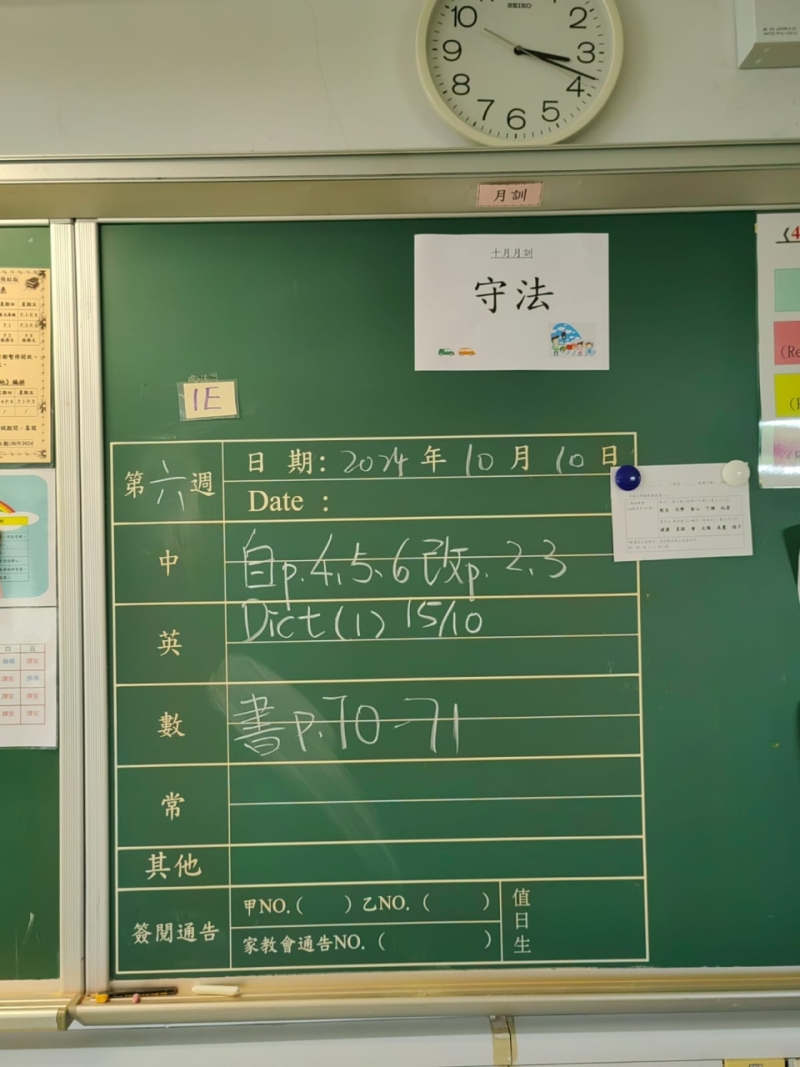 SEIKO
10
2
9
3
8
4
7
6
5
月訓
十月月訓
守法
1E
第六週
日 期：2024年10月10日
Date ：
中
自p.4、5、6 改p. 2、3
英
Dict (1) 15/10
數
書p.70-71
常
其他
簽閱通告
甲NO.( ) 乙NO. ( )
家教會通告NO. ( )
值日生